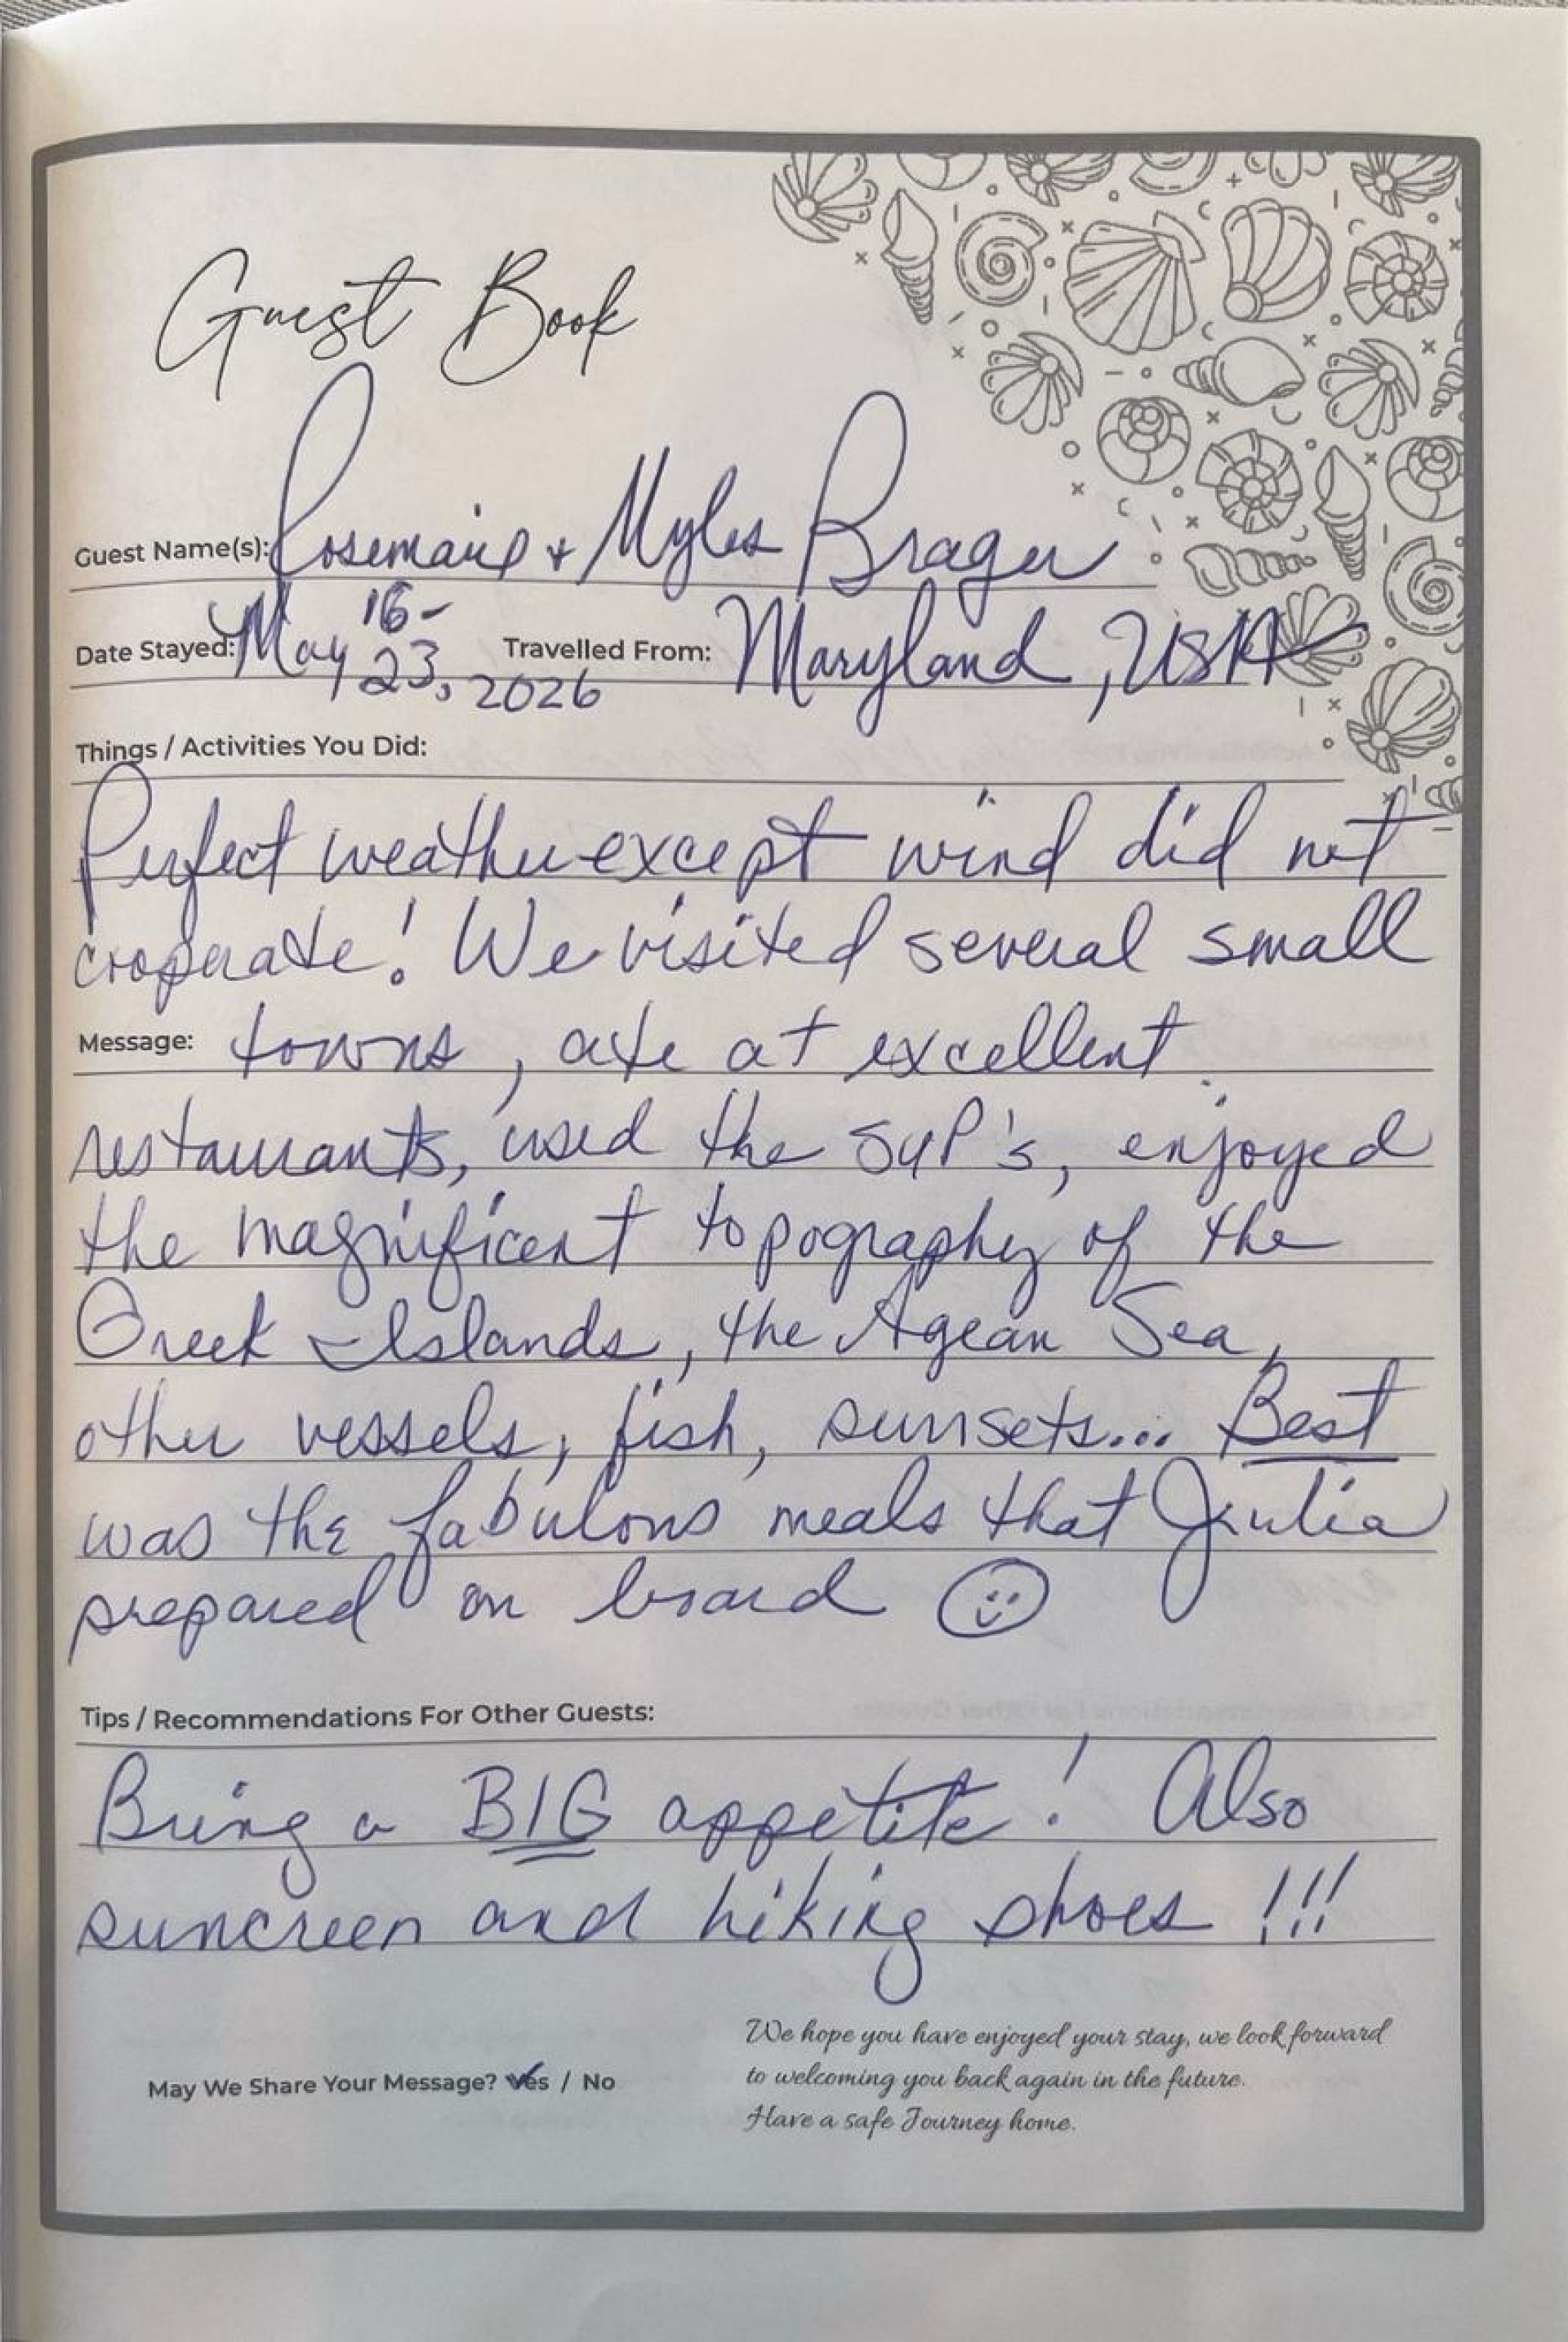 Guest Book
Guest Name(s): Rosemarie + Myles Brager
Date Stayed: May 16-23, 2026 Travelled From: Maryland, USA
Things / Activities You Did:
Perfect weather except wind did not
cooperate! We visited several small
Message: towns, ate at excellent
restaurants, used the SUP's, enjoyed
the magnificent topography of the
Greek Islands, the Agean Sea,
other vessels, fish, sunsets... Best
was the fabulous meals that Julia
prepared on board
Tips / Recommendations For Other Guests:
Bring a BIG appetite! Also
suncreen and hiking shoes !!!
We hope you have enjoyed your stay, we look forward
to welcoming you back again in the future.
Have a safe Journey home.
May We Share Your Message? Yes / No